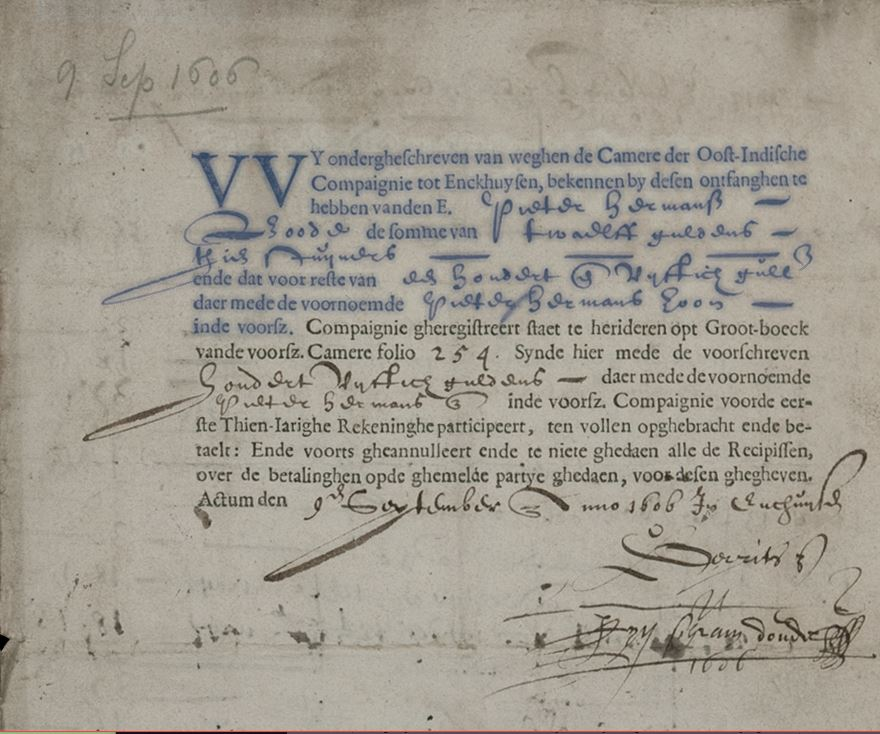 9 Sep 1606
VVY ondergheschreven van weghen de Camere der Oost-Indische
Compaignie tot Enckhuysen, bekennen by desen ontfanghen te
hebben vanden E. Pieter Hermansz
de somme van twaelff guldens
thien stuyvers
ende dat voor reste van een hondert Vyftich guld
daer mede de voornoemde Pieter Hermans zoon
inde voorsz. Compaignie gheregistreert staet te herideren opt Groot-boeck
vande voorsz. Camere folio 254. Synde hier mede de voorschreven
hondert Vyftich guldens daer mede de voornoemde
Pieter Hermans inde voorsz. Compaignie voorde eer-
ste Thien-Iarighe Rekeninghe participeert, ten vollen opghebracht ende be-
taelt: Ende voorts gheannulleert ende te niete ghedaen alle de Recipissen,
over de betalinghen opde ghemelde partye ghedaen, voor desen ghegheven.
Actum den 9 September Anno 1606 In Enchuysen
Gerrits
1606